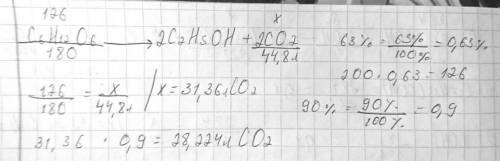 126 x
C6H12O6 → 2C2H5OH + 2CO2
180 44,8л
63% = 63%/100% = 0,63%
200 · 0,63 = 126
126/180 = x/44,8л / x = 31,36л CO2
90% = 90%/100% = 0,9
31,36 · 0,9 = 28,224л CO2